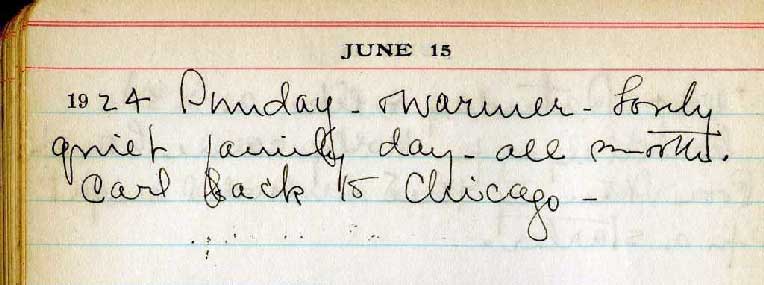 JUNE 15
1924 Sunday - warmer - Lovely
quiet family day - all smooth.
Carl back to Chicago -